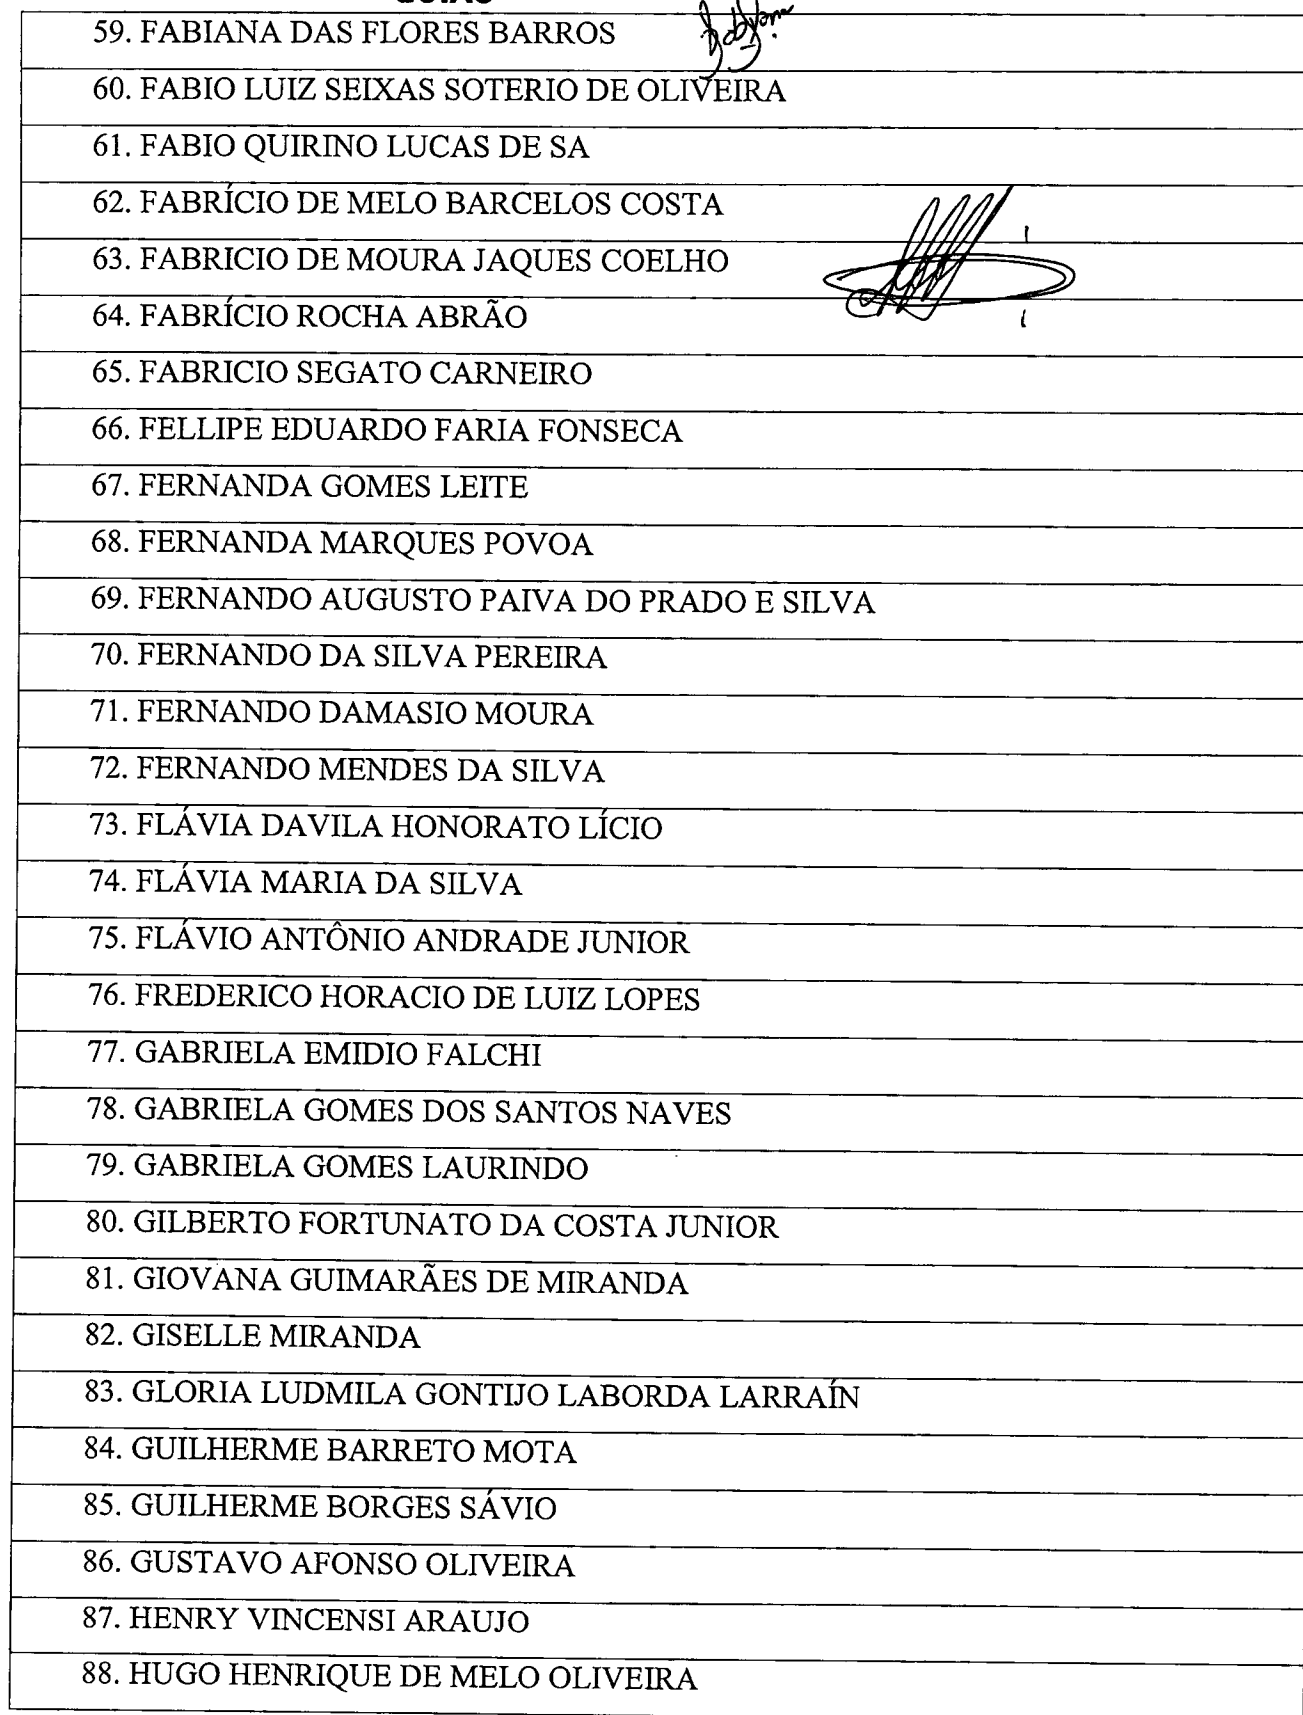 59. FABIANA DAS FLORES BARROS
60. FABIO LUIZ SEIXAS SOTERIO DE OLIVEIRA
61. FABIO QUIRINO LUCAS DE SA
62. FABRÍCIO DE MELO BARCELOS COSTA
63. FABRICIO DE MOURA JAQUES COELHO
64. FABRÍCIO ROCHA ABRÃO
65. FABRICIO SEGATO CARNEIRO
66. FELLIPE EDUARDO FARIA FONSECA
67. FERNANDA GOMES LEITE
68. FERNANDA MARQUES POVOA
69. FERNANDO AUGUSTO PAIVA DO PRADO E SILVA
70. FERNANDO DA SILVA PEREIRA
71. FERNANDO DAMASIO MOURA
72. FERNANDO MENDES DA SILVA
73. FLÁVIA DAVILA HONORATO LÍCIO
74. FLÁVIA MARIA DA SILVA
75. FLÁVIO ANTÔNIO ANDRADE JUNIOR
76. FREDERICO HORACIO DE LUIZ LOPES
77. GABRIELA EMIDIO FALCHI
78. GABRIELA GOMES DOS SANTOS NAVES
79. GABRIELA GOMES LAURINDO
80. GILBERTO FORTUNATO DA COSTA JUNIOR
81. GIOVANA GUIMARÃES DE MIRANDA
82. GISELLE MIRANDA
83. GLORIA LUDMILA GONTIJO LABORDA LARRAÍN
84. GUILHERME BARRETO MOTA
85. GUILHERME BORGES SÁVIO
86. GUSTAVO AFONSO OLIVEIRA
87. HENRY VINCENSI ARAUJO
88. HUGO HENRIQUE DE MELO OLIVEIRA